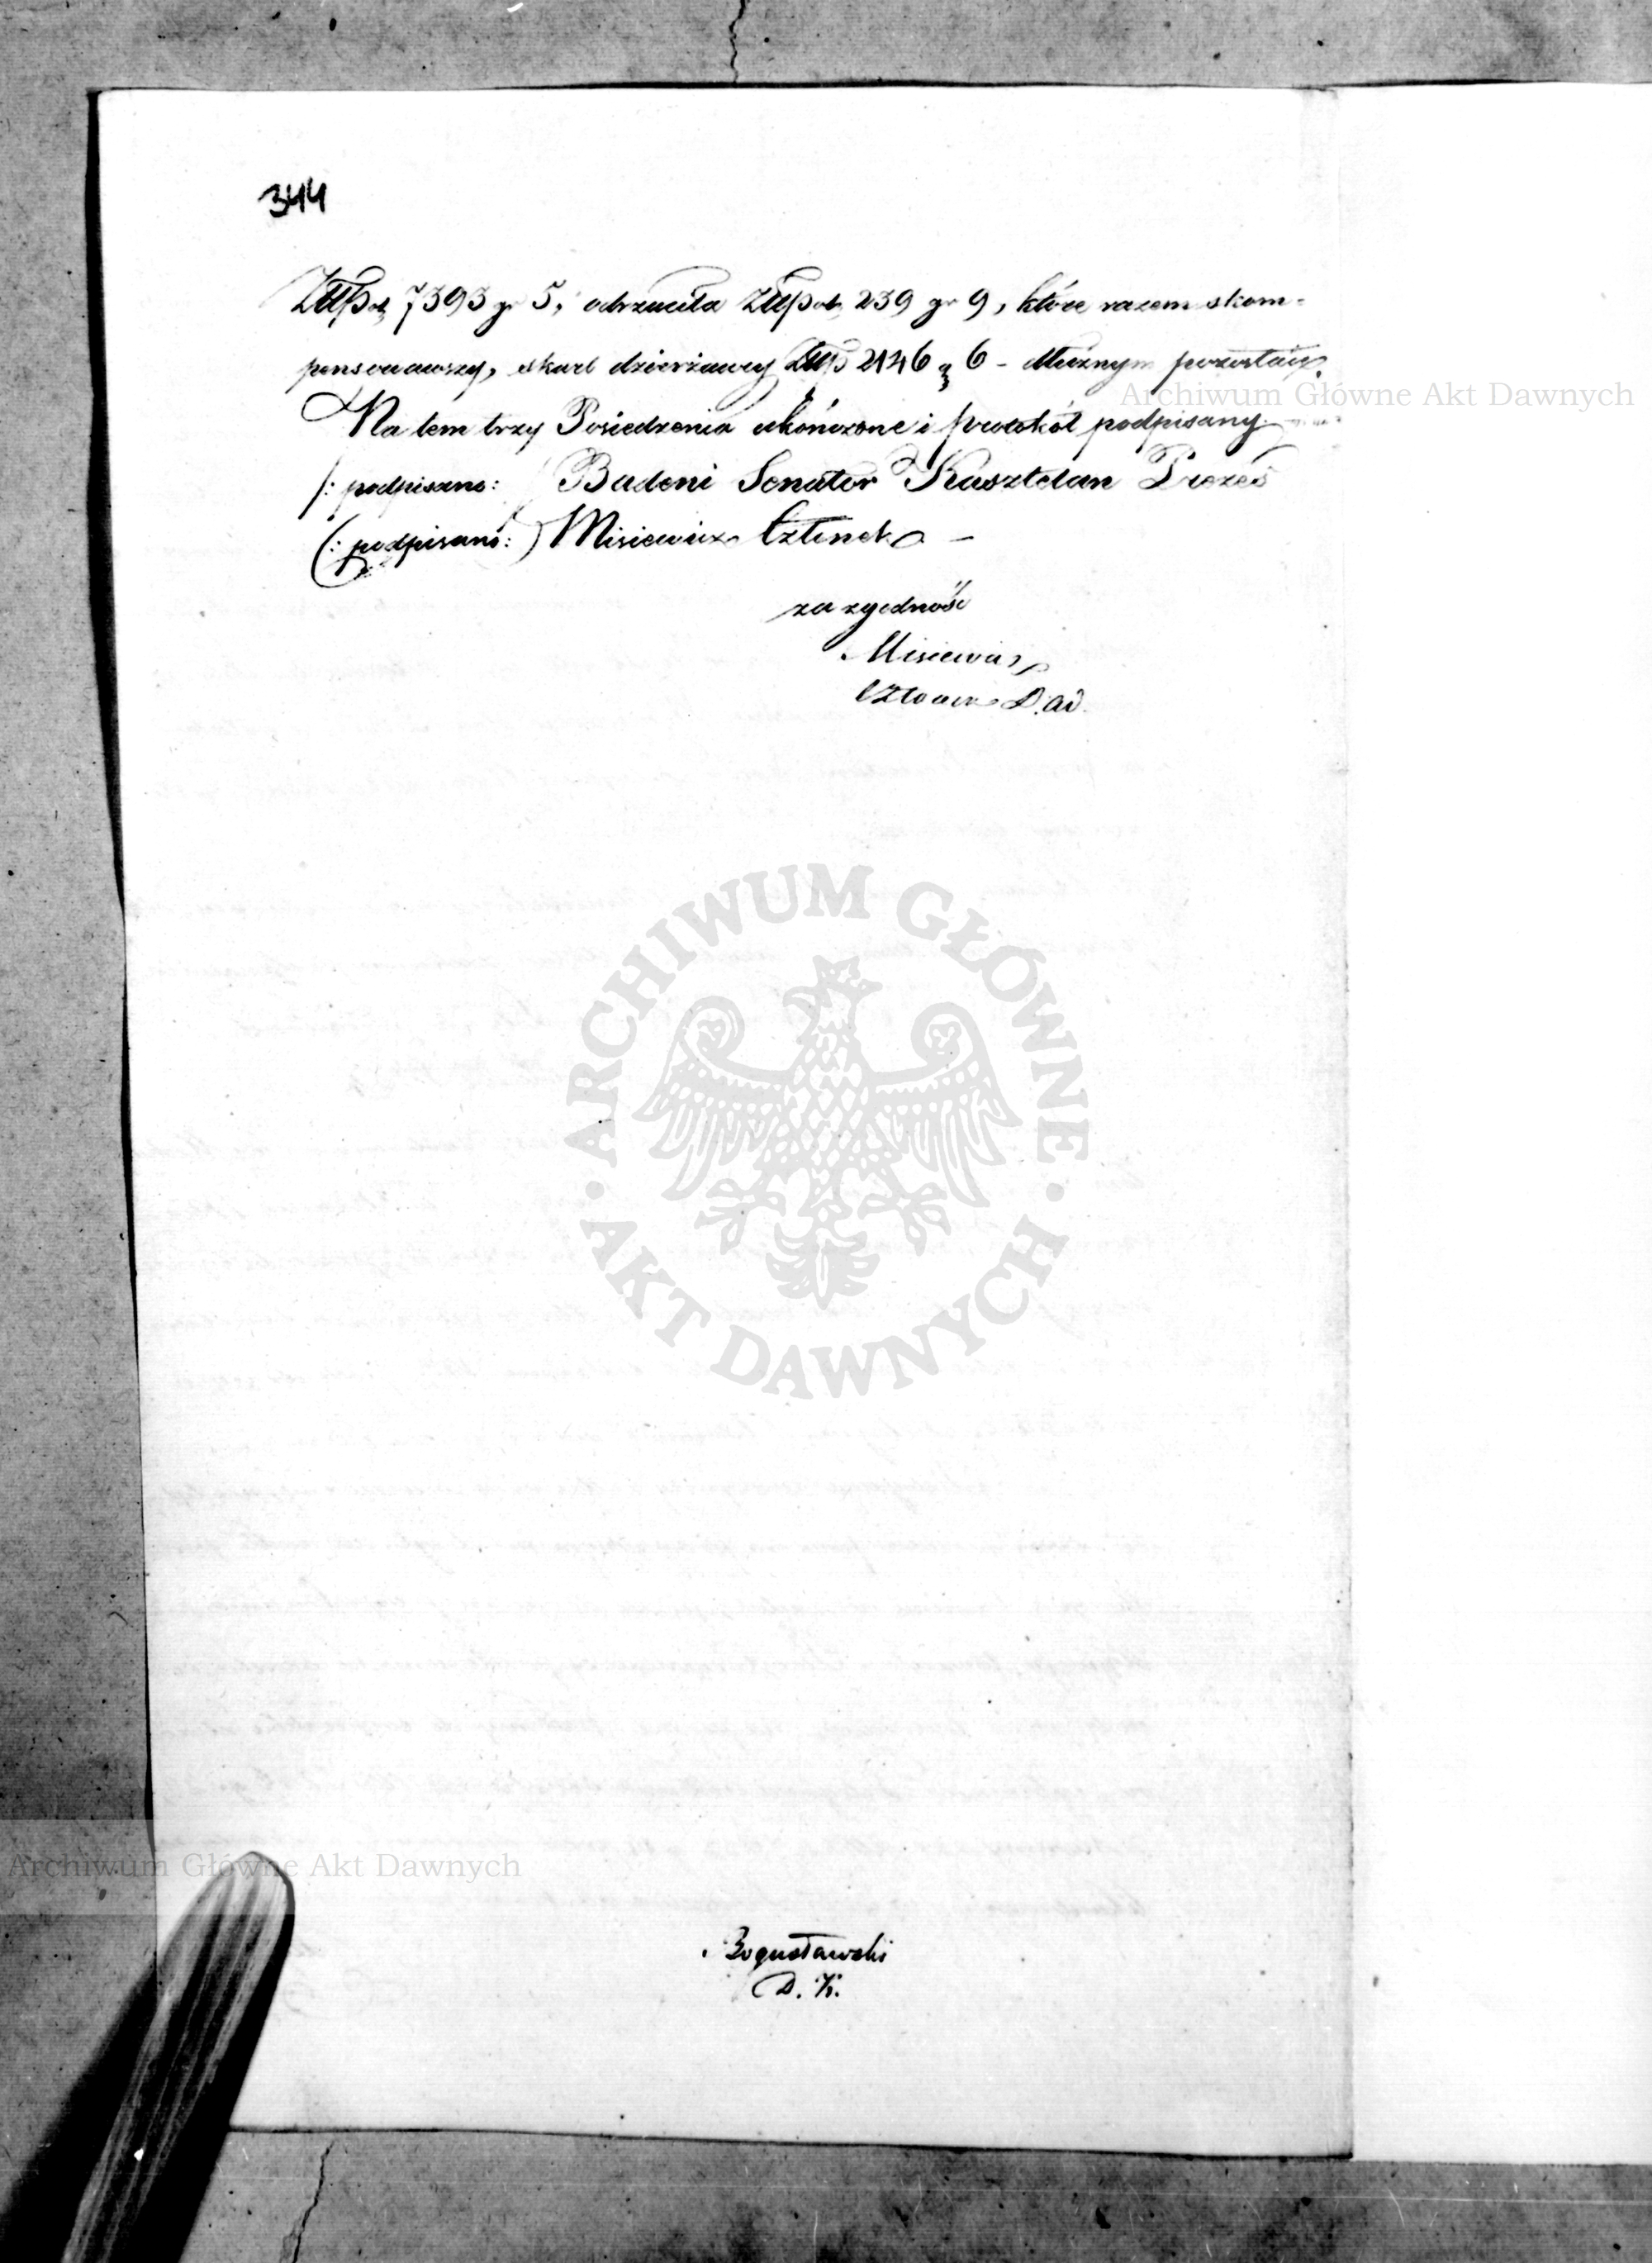 344
Złłpol 7393 gr 5, odrzuciła Złłpol 239 gr 9, które razem skom-
pensowawszy, skarb dzierżawcy Złłp 2146 gr 6 – dłużnym pozostaje.
Archiwum Główne Akt Dawnych
Na tem trzy Posiedzenia ukończone i protokół podpisany
/: podpisano: / Badeni Senator Kasztelan Prezes
(: podpisano: ) Misiewicz Członek –
za zgodność
Misiewicz
Członek D. A.
ARCHIWUM GŁÓWNE
AKT DAWNYCH
Archiwum Główne Akt Dawnych
Bogusławski
D. K.